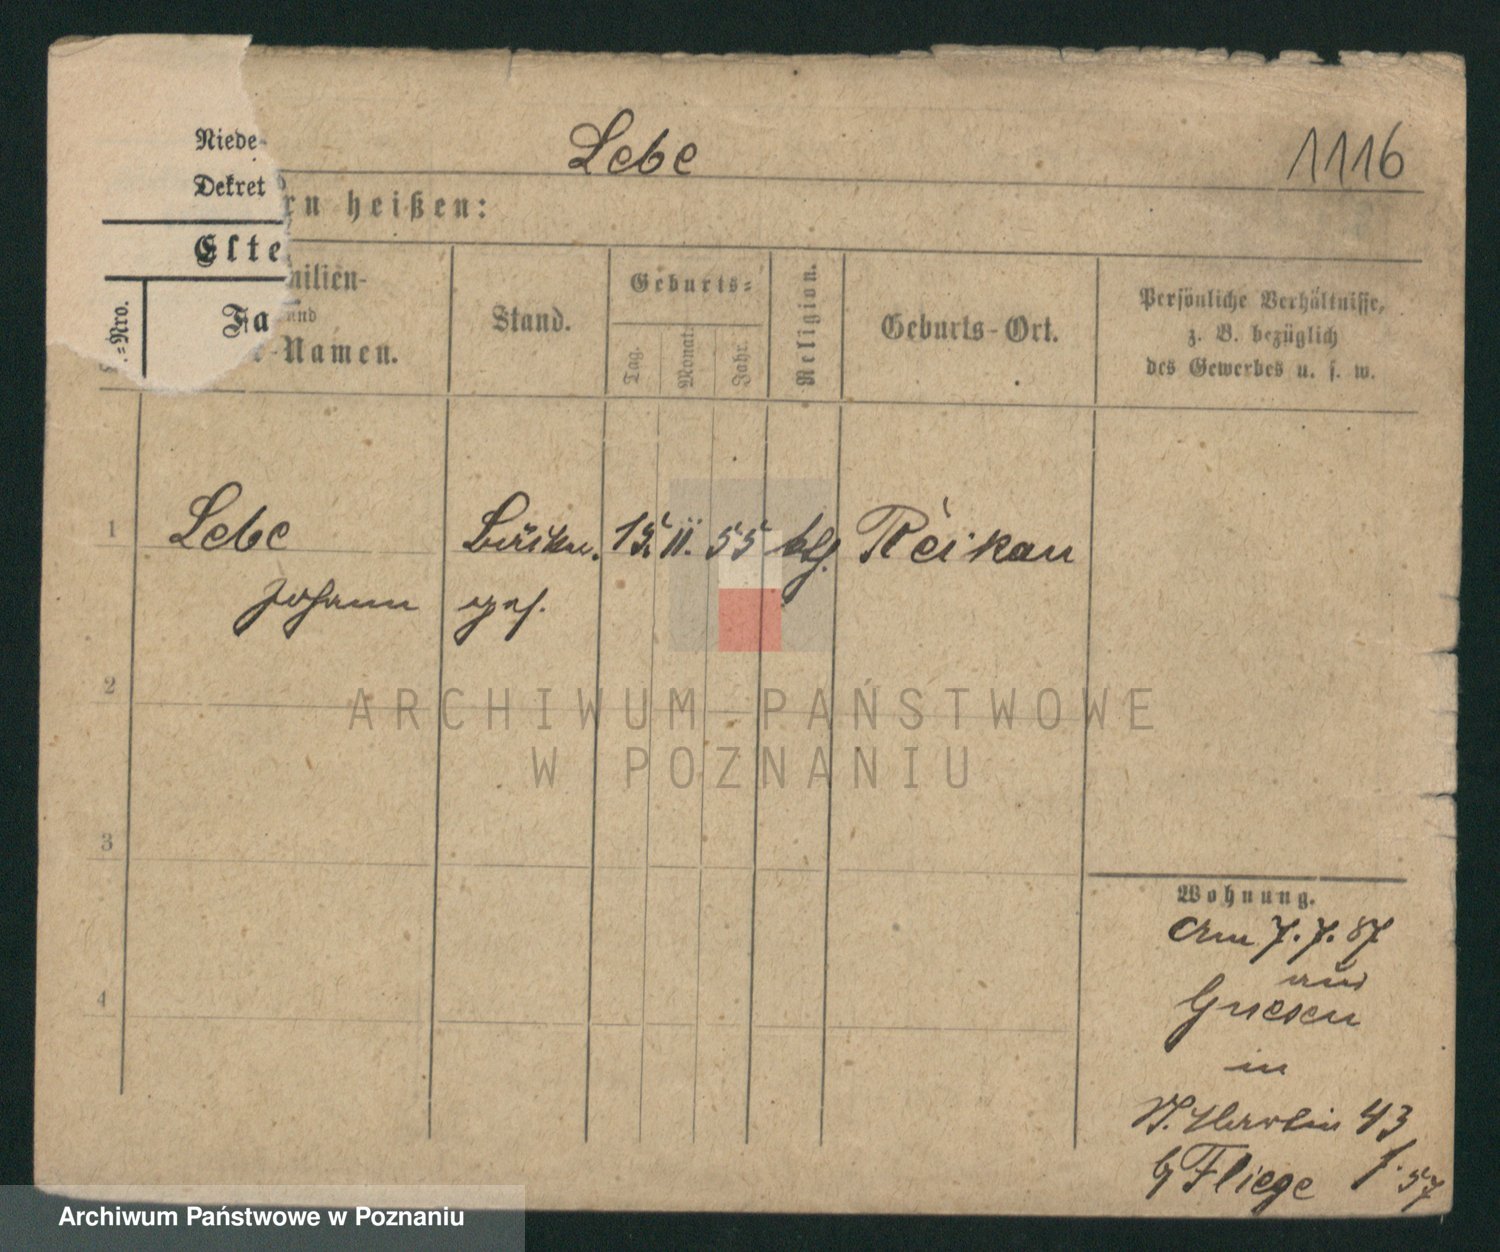 Lebe
1116
Niede-
Dekret
rn heißen:
Elte
.=Nro.
Fa
milien-
und
e-Namen.
Stand.
Geburts=
Tag.
Monat.
Jahr.
Religion.
Geburts-Ort.
Persönliche Verhältnisse,
z. B. bezüglich
des Gewerbes u. s. w.
1
Lebe
Johann
ges.
15. II. 55
ktl.
Reikau
2
3
4
Wohnung.
Am 7.7.87
aus
Gnesen
in
St. Martin 43
b/ Fliege f. 57
ARCHIWUM PAŃSTWOWE
W POZNANIU
Archiwum Państwowe w Poznaniu